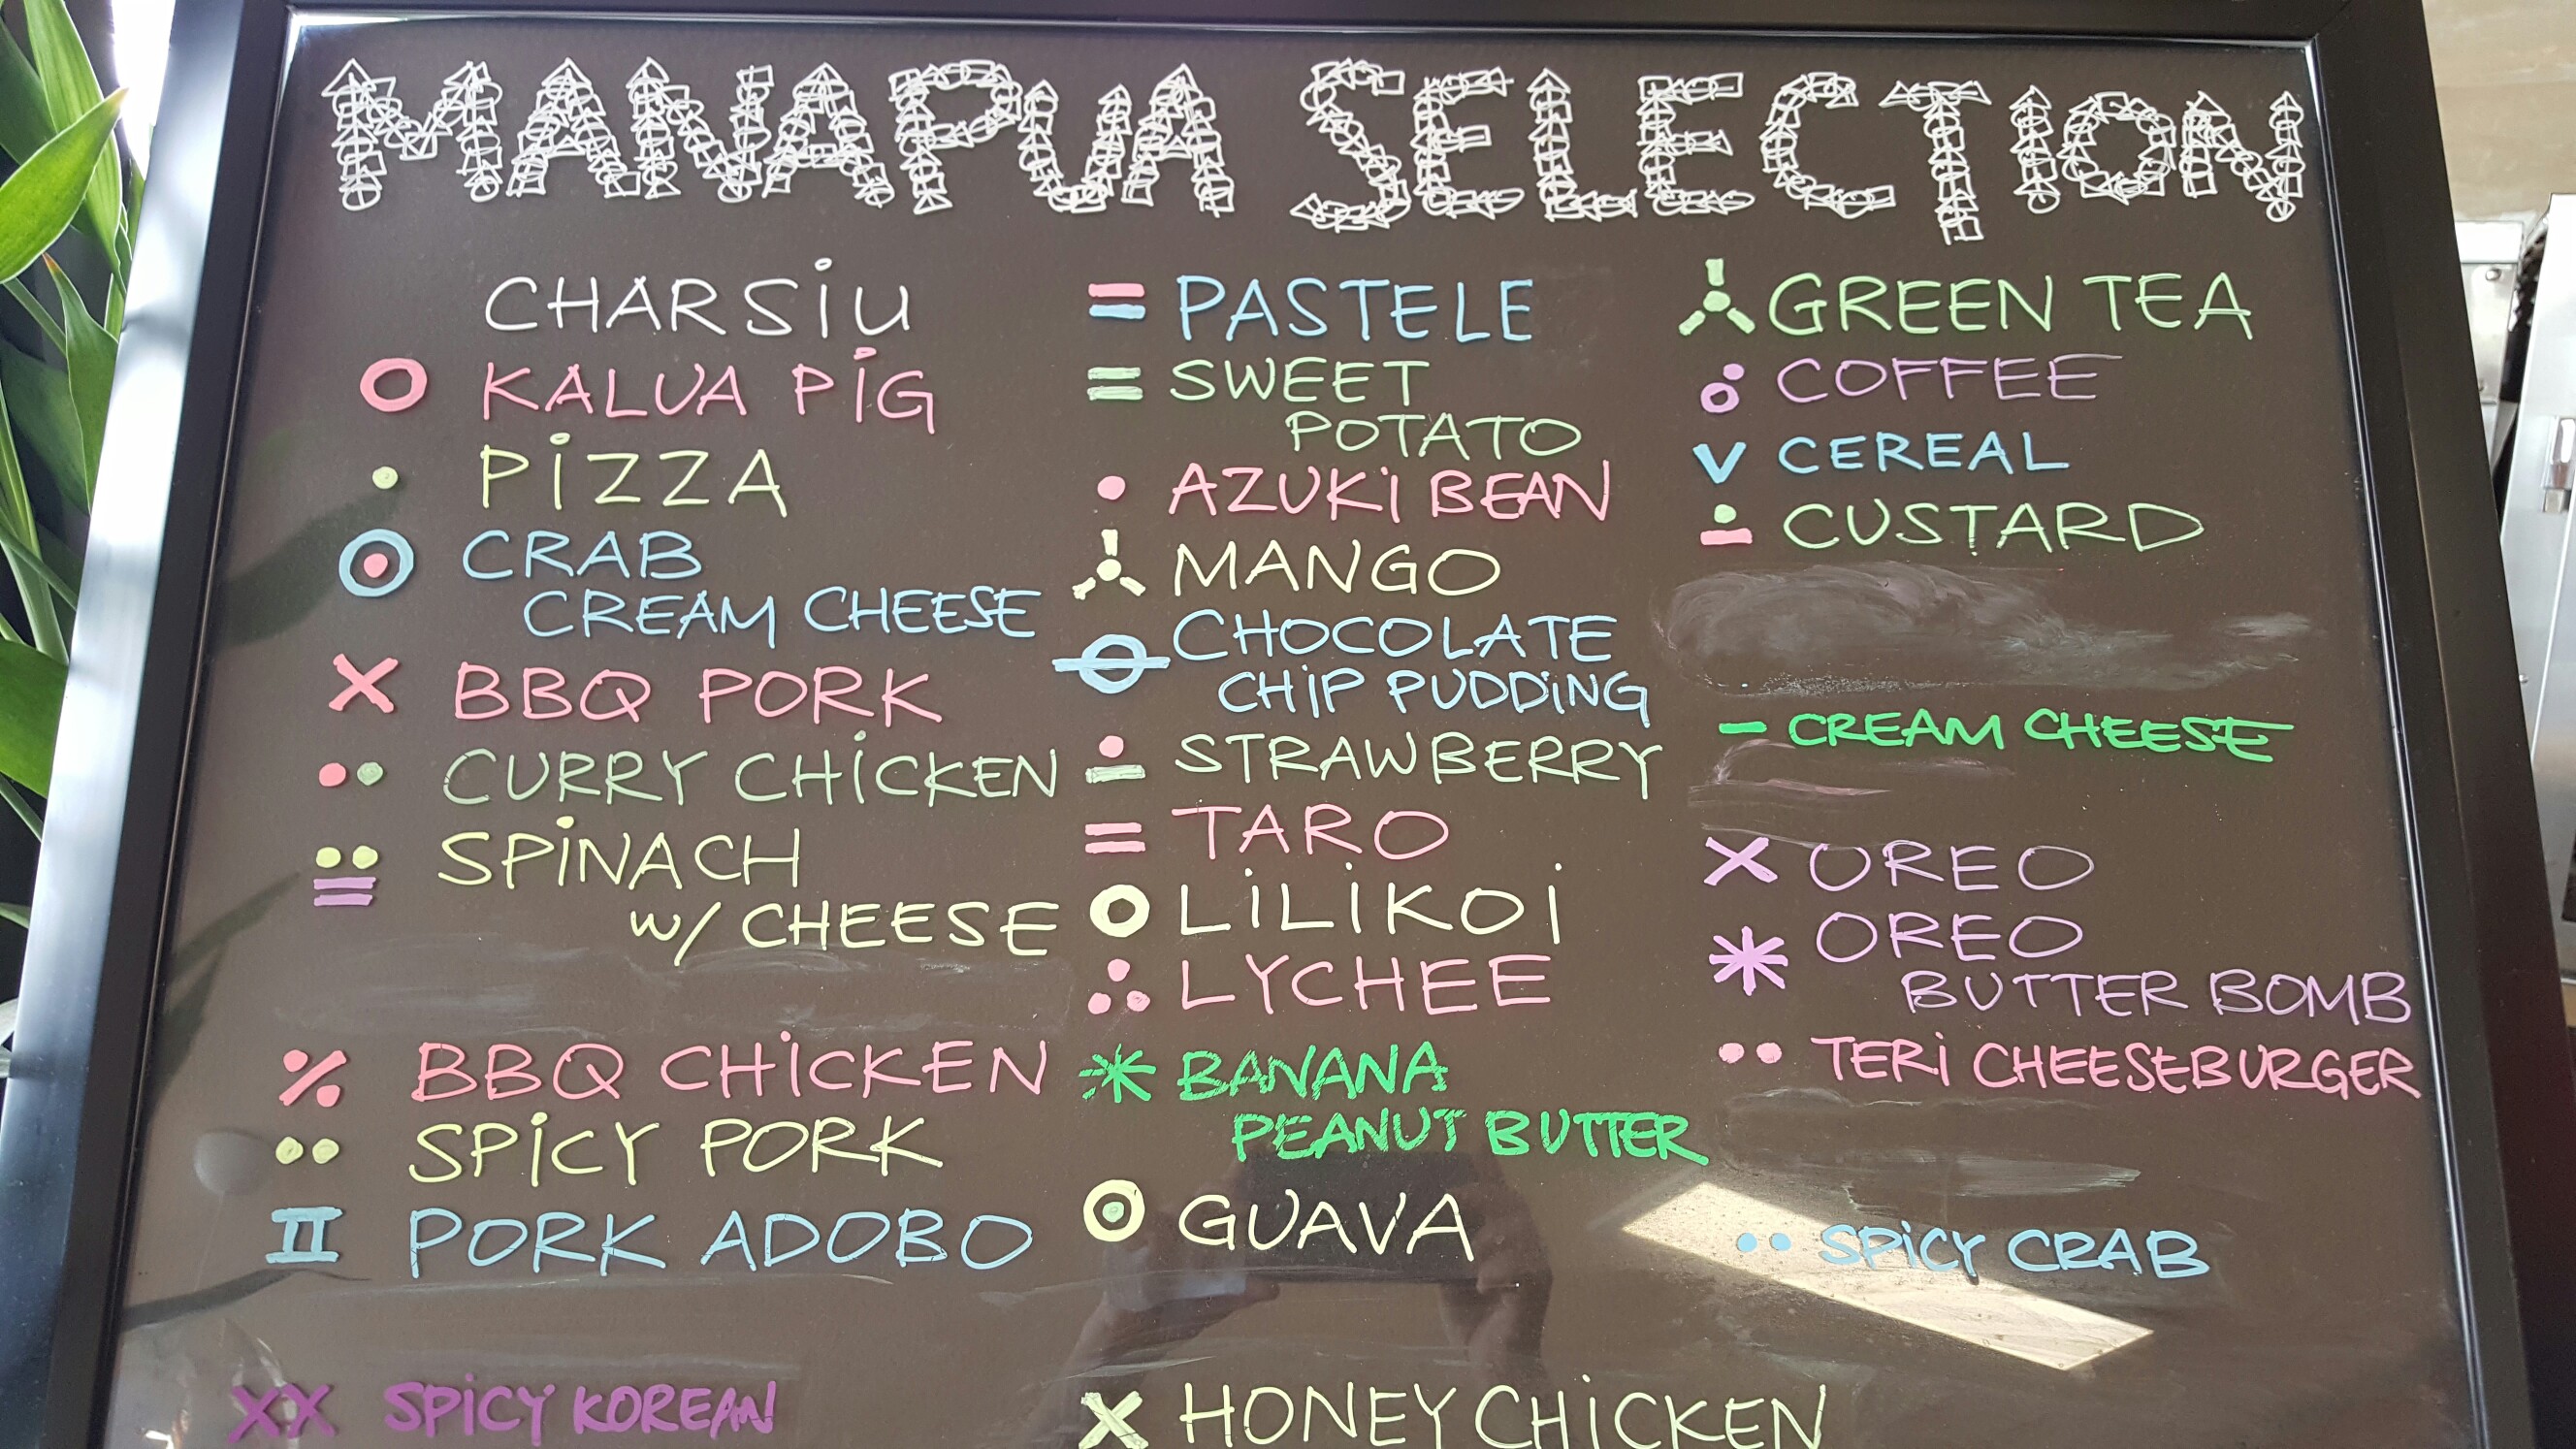 MANAPUA SELECTION
CHARSiU
KALUA PiG
PiZZA
CRAB
CREAM CHEESE
BBQ PORK
CURRY CHiCKEN
SPiNACH
w/ CHEESE
BBQ CHiCKEN
SPiCY PORK
PORK ADOBO
XX SPiCY KOREAN
PASTELE
SWEET
POTATO
AZUKi BEAN
MANGO
CHOCOLATE
CHiP PUDDiNG
STRAWBERRY
TARO
LiLiKOi
LYCHEE
BANANA
PEANUT BUTTER
GUAVA
X HONEY CHiCKEN
GREEN TEA
COFFEE
V CEREAL
CUSTARD
- CREAM CHEESE
X OREO
* OREO
BUTTER BOMB
TERi CHEESEBURGER
SPiCY CRAB